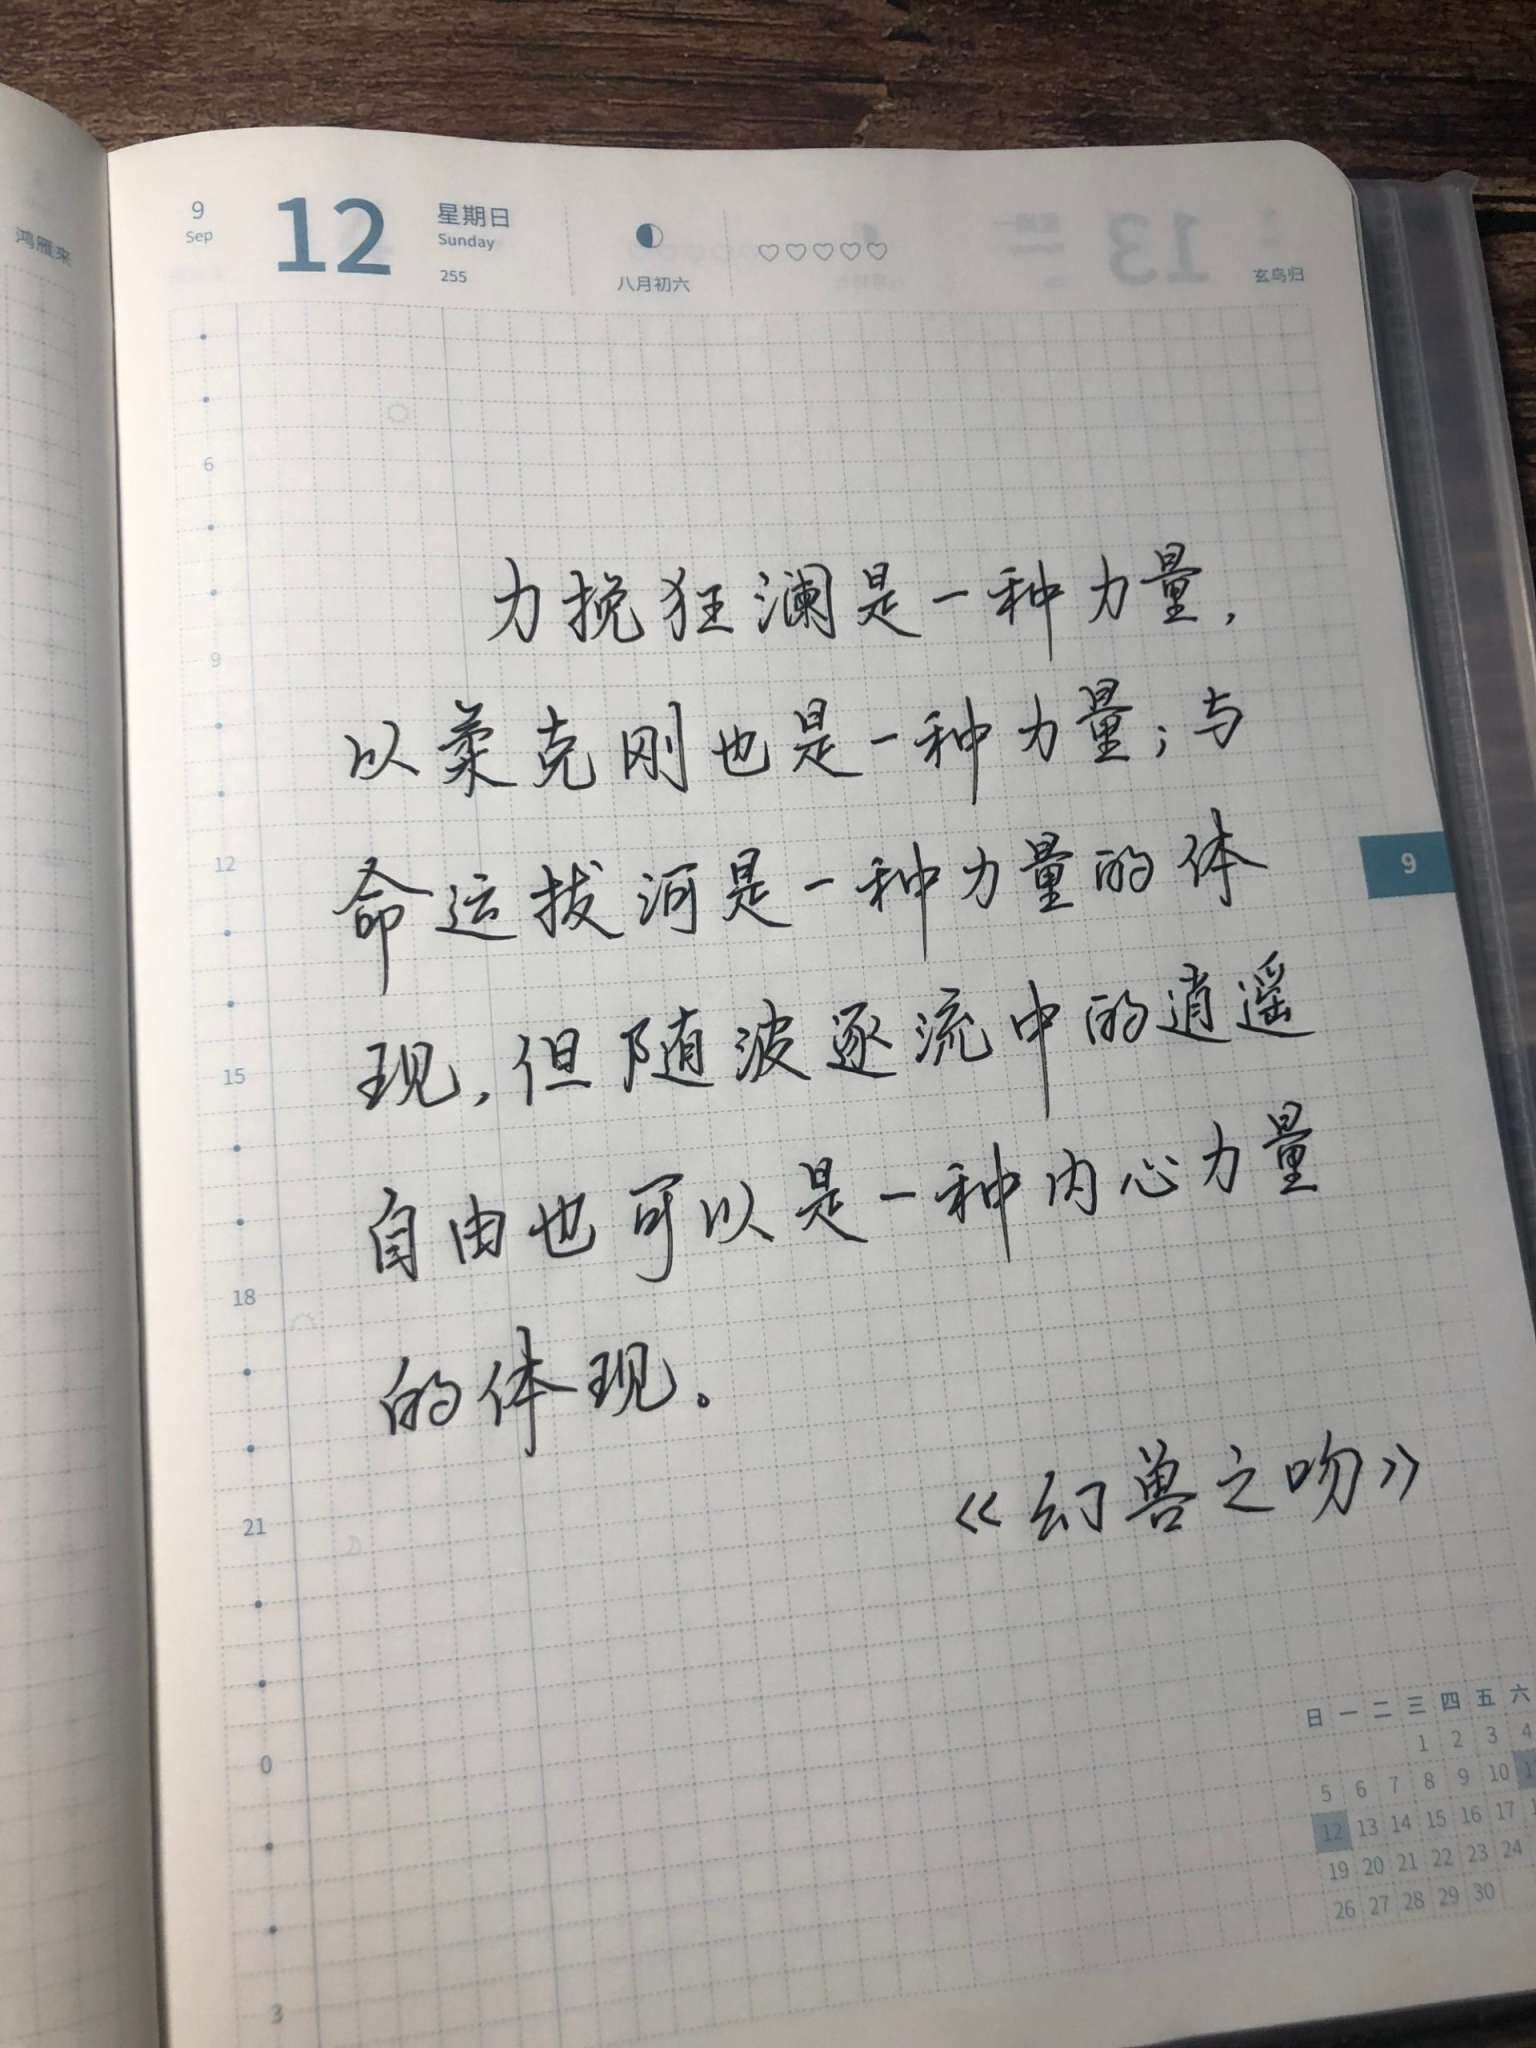 鸿雁来
9
Sep
12
星期日
Sunday
255
八月初六
玄鸟归
6
力挽狂澜是一种力量，
9
以柔克刚也是一种力量；与
12
命运拔河是一种力量的体
9
现，但随波逐流中的逍遥
15
自由也可以是一种内心力量
18
的体现。
《幻兽之吻》
21
0
3
日 一 二 三 四 五 六
1 2 3 4
5 6 7 8 9 10
12 13 14 15 16 17
19 20 21 22 23 24
26 27 28 29 30